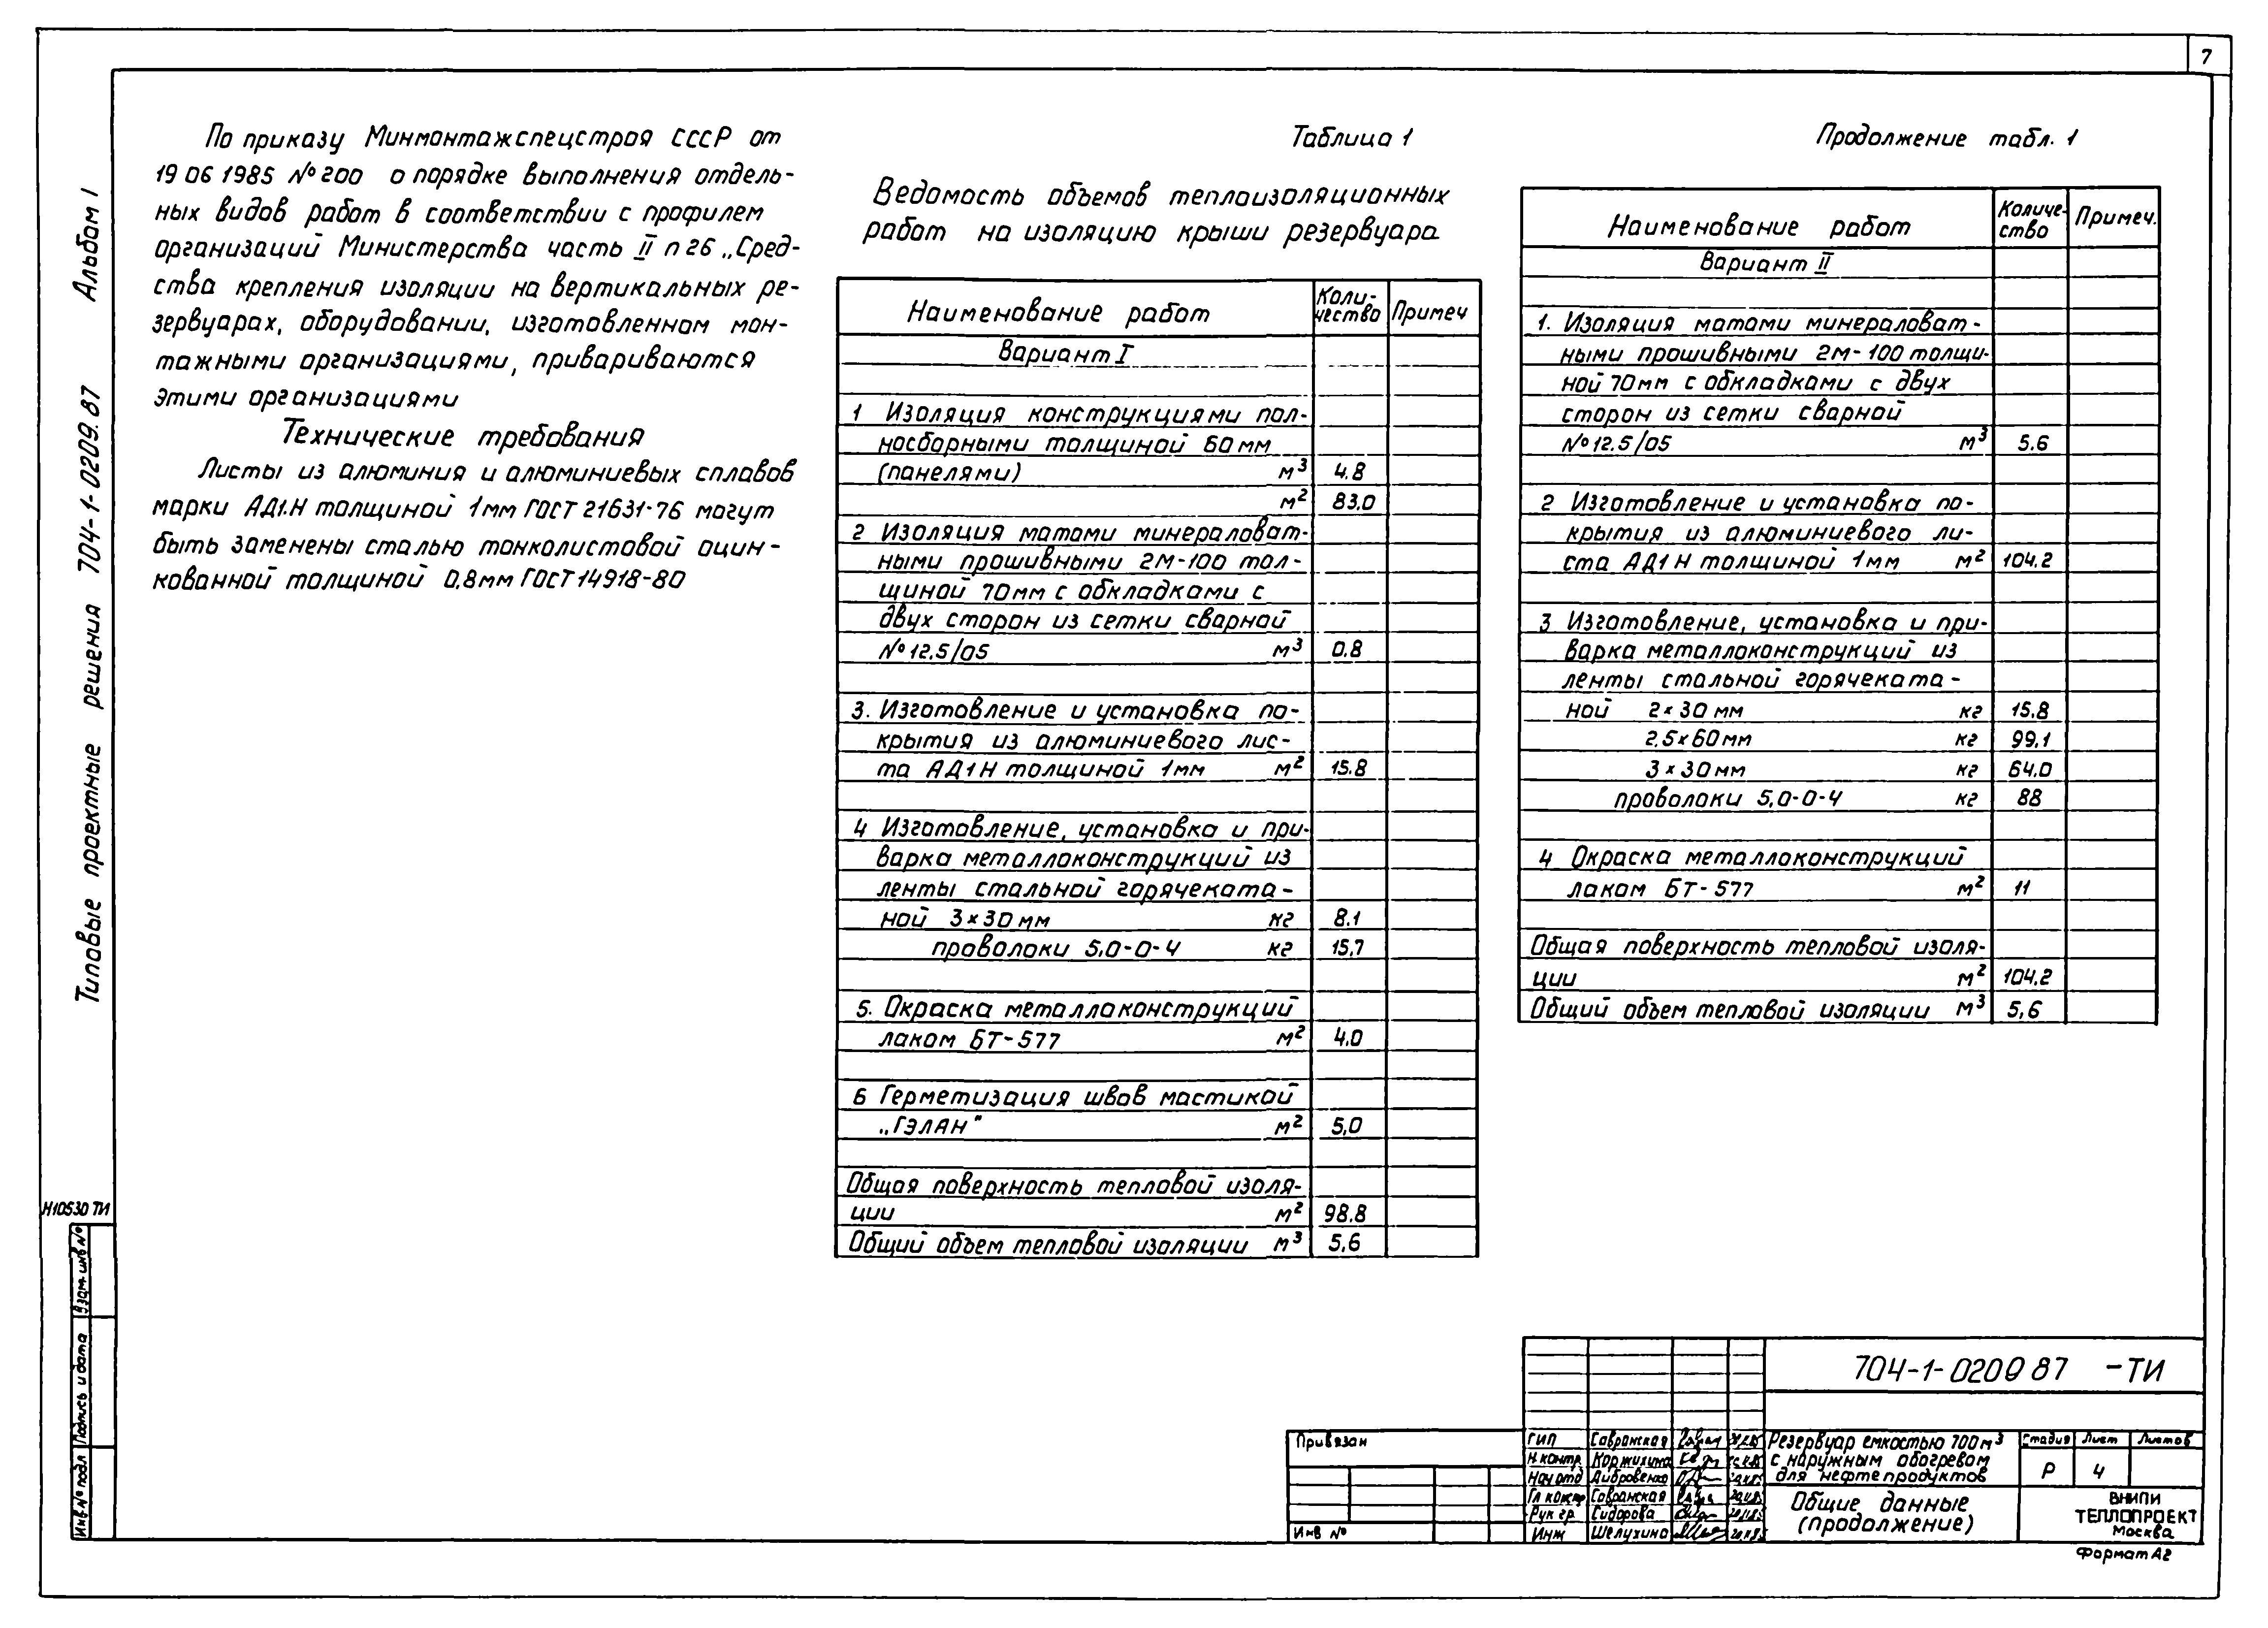 7
Альбом I
Типовые проектные решения 704-1-0209.87
По приказу Минмонтажспецстроя СССР от
19 06 1985 №200 о порядке выполнения отдель-
ных видов работ в соответствии с профилем
организаций Министерства часть II п 26 „Сред-
ства крепления изоляции на вертикальных ре-
зервуарах, оборудовании, изготовленном мон-
тажными организациями, привариваются
этими организациями
Технические требования
Листы из алюминия и алюминиевых сплавов
марки АД1.Н толщиной 1мм ГОСТ 21631-76 могут
быть заменены сталью тонколистовой оцин-
кованной толщиной 0,8мм ГОСТ 14918-80
Таблица 1
Ведомость объемов теплоизоляционных
работ на изоляцию крыши резервуара
Наименование работ Коли-чество Примеч
Вариант I
1 Изоляция конструкциями пол-
носборными толщиной 60мм
(панелями) м3 4.8
м2 83,0
2 Изоляция матами минераловат-
ными прошивными 2М-100 тол-
щиной 70мм с обкладками с
двух сторон из сетки сварной
№12.5/05 м3 0.8
3. Изготовление и установка по-
крытия из алюминиевого лис-
та АД1Н толщиной 1мм м2 15.8
4 Изготовление, установка и при-
варка металлоконструкций из
ленты стальной горячеката-
ной 3×30мм кг 8.1
проволоки 5,0-0-4 кг 15,7
5. Окраска металлоконструкций
лаком БТ-577 м2 4,0
6 Герметизация швов мастикой
„ГЭЛАН" м2 5,0
Общая поверхность тепловой изоля-
ции м2 98.8
Общий объем тепловой изоляции м3 5,6
Продолжение табл. 1
Наименование работ Количе-ство Примеч.
Вариант II
1. Изоляция матами минераловат-
ными прошивными 2М-100 толщи-
ной 70мм с обкладками с двух
сторон из сетки сварной
№12.5/05 м3 5.6
2 Изготовление и установка по-
крытия из алюминиевого ли-
ста АД1Н толщиной 1мм м2 104.2
3 Изготовление, установка и при-
варка металлоконструкций из
ленты стальной горячеката-
ной 2×30мм кг 15.8
2,5×60мм кг 99,1
3×30мм кг 64.0
проволоки 5,0-0-4 кг 88
4 Окраска металлоконструкций
лаком БТ-577 м2 11
Общая поверхность тепловой изоля-
ции м2 104.2
Общий объем тепловой изоляции м3 5,6
Н10530 ТИ
Взам. инв №
Подпись и дата
Инв № подл
Привязан
Инв №
704-1-0209 87 -ТИ
ГИП Савранская
Н.контр Коржихина
Нач отд Дибровенко
Гл констр Савранская
Рук гр. Сидорова
Инж Шелухина
Резервуар емкостью 700м3
с наружным обогревом
для нефтепродуктов
Стадия Лист Листов
Р 4
Общие данные
(продолжение)
ВНИПИ
ТЕПЛОПРОЕКТ
Москва
Формат А2